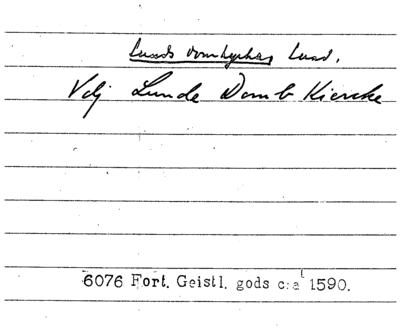 Lunds domkyrka, Lund.
Vdj Lunde Domb Kiercke
6076 Fort. Geistl. gods c:a 1590.